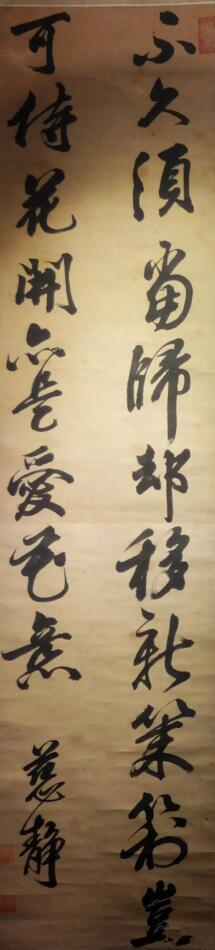 不久須當歸却移新築豈
可待花開亦是愛花意
慈静